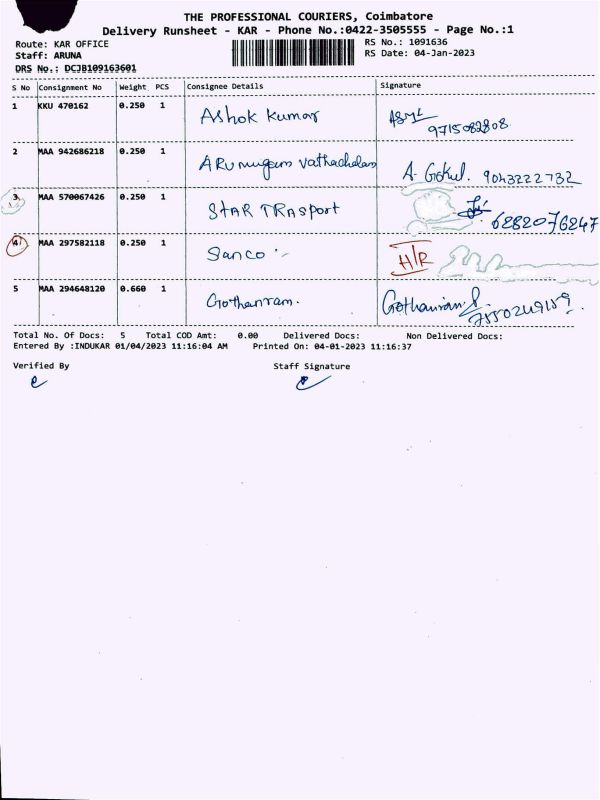 THE PROFESSIONAL COURIERS, Coimbatore
Delivery Runsheet - KAR - Phone No.:0422-3505555 - Page No.:1
Route: KAR OFFICE
RS No.: 1091636
Staff: ARUNA
RS Date: 04-Jan-2023
DRS No.: DCJB109163601
S No Consignment No Weight PCS Consignee Details Signature
1 KKU 470162 0.250 1 Ashok Kumar
9715082808
2 MAA 942686218 0.250 1 ARumugam Vathachalam A. Gokul. 9043222732
3 MAA 570067426 0.250 1 STAR TRAsport
6282076247
4 MAA 297582118 0.250 1 Sanco :- H/R
5 MAA 294648120 0.660 1 Gothanram. Gothanram S.
7550249159.
Total No. Of Docs: 5 Total COD Amt: 0.00 Delivered Docs: Non Delivered Docs:
Entered By :INDUKAR 01/04/2023 11:16:04 AM Printed On: 04-01-2023 11:16:37
Verified By Staff Signature